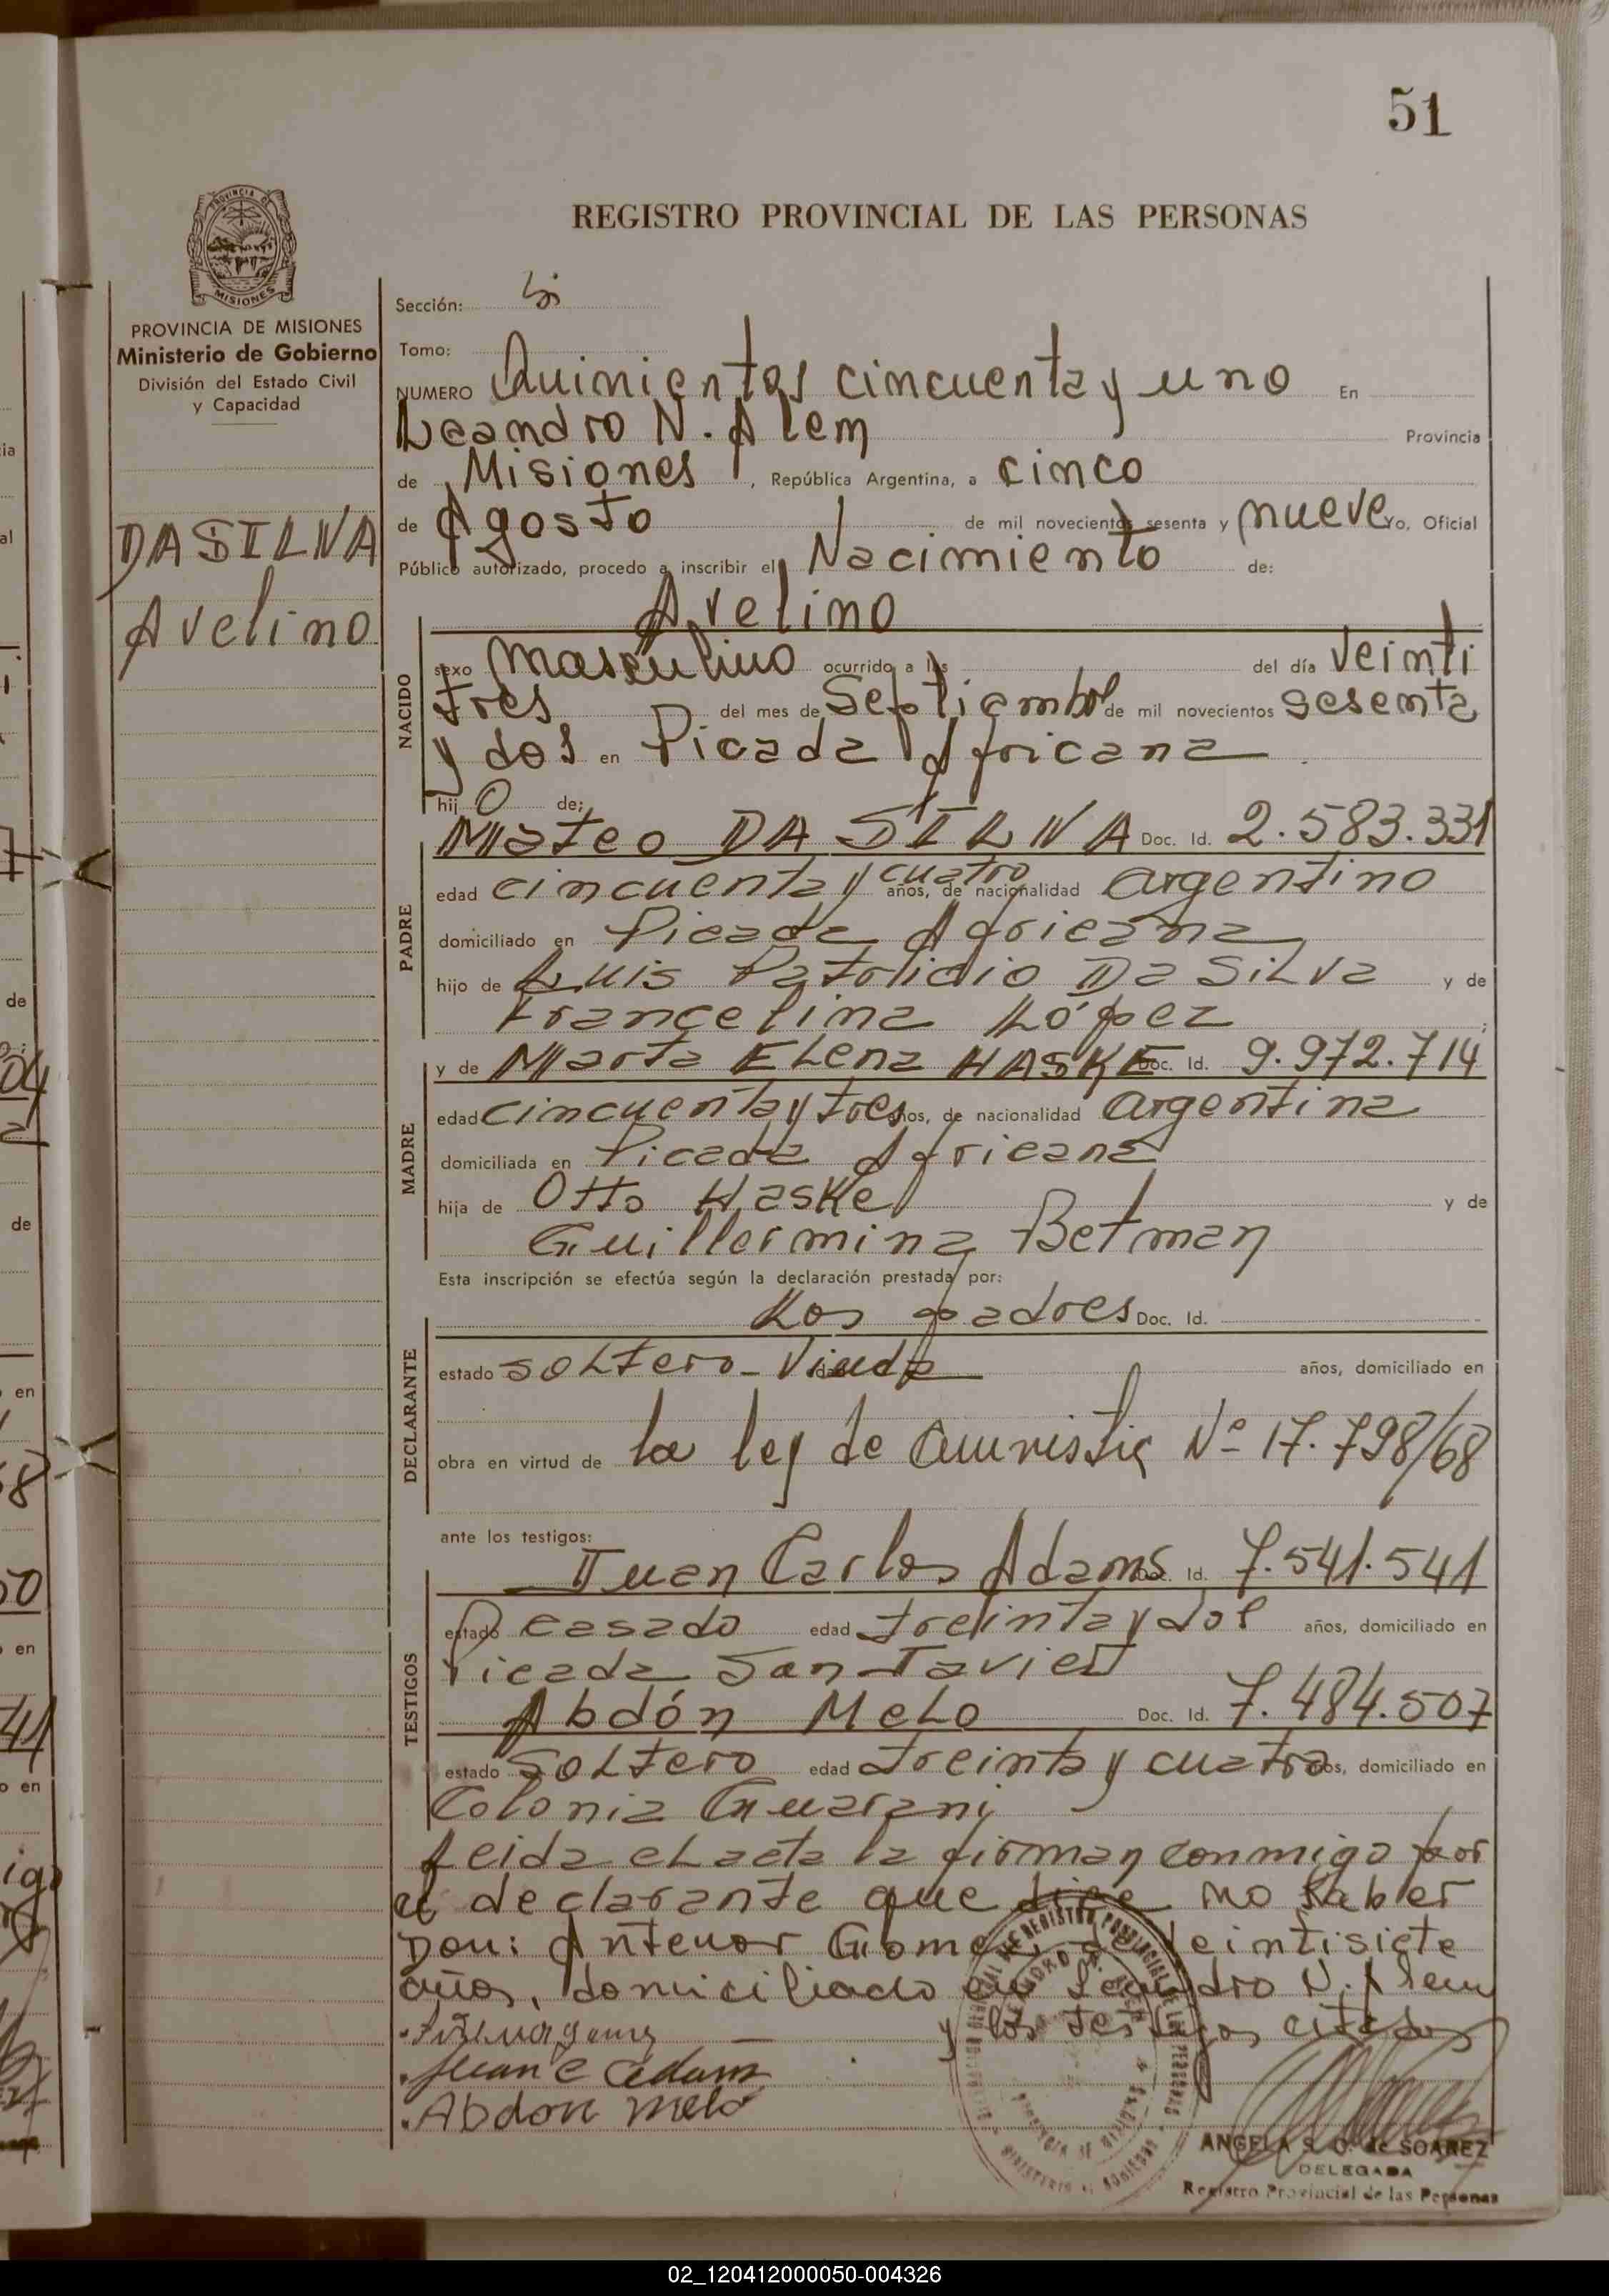 51
REGISTRO PROVINCIAL DE LAS PERSONAS
PROVINCIA DE MISIONES
Ministerio de Gobierno
División del Estado Civil
y Capacidad
DA SILVA
Avelino
Sección:
Tomo:
NUMERO Quinientos cincuenta y uno En
Leandro N. Alem Provincia
de Misiones, República Argentina, a cinco
de Agosto de mil novecientos sesenta y nueve Yo, Oficial
Público autorizado, procedo a inscribir el Nacimiento de:
Avelino
NACIDO
sexo masculino ocurrido a las del día veinti
tres del mes de Septiembre de mil novecientos sesenta
y dos en Picada Africana
hijo de:
Mateo DA SILVA Doc. Id. 2.583.331
PADRE
edad cincuenta y cuatro años, de nacionalidad argentino
domiciliado en Picada Africana
hijo de Luis Patrlidio Da Silva y de
Francelina López
y de Marta Elena HASKE Doc. Id. 9.972.714
MADRE
edad cincuenta y tres años, de nacionalidad argentina
domiciliada en Picada Africana
hija de Otto Haske y de
Guillermina Betman
Esta inscripción se efectúa según la declaración prestada por:
Los padres Doc. Id.
DECLARANTE
estado soltero - Viuda años, domiciliado en
obra en virtud de la ley de amnistia Nº 17.798/68
ante los testigos:
Juan Carlos Adams Doc. Id. 7.541.541
TESTIGOS
estado casado edad treinta y dos años, domiciliado en
Picada San Javier
Abdón Melo Doc. Id. 7.484.507
estado soltero edad treinta y cuatro años, domiciliado en
Colonia Guarani
Leida el acta la firman conmigo por
el declarante que dice no saber
Don: Antenor Gomez de veintisiete
años, domiciliado en Leandro N. Alem
y los testigos citados
Juan C Adams
Abdon melo
ANGELA S. O. de SOAREZ
DELEGADA
Registro Provincial de las Personas
02_120412000050-004326